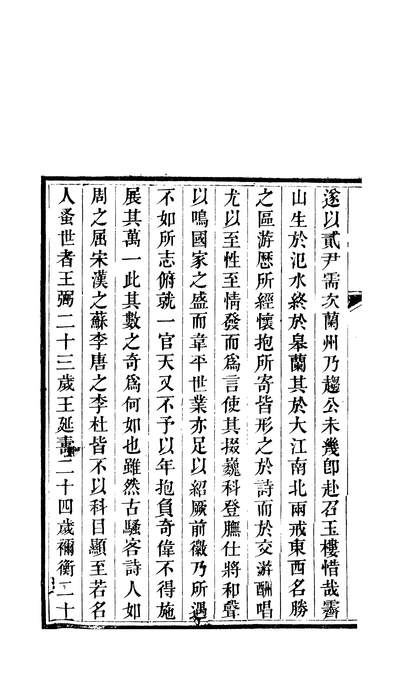 遂以貳尹需次蘭州乃趨公未幾卽赴召玉樓惜哉霽
山生於氾水終於皋蘭其於大江南北兩戒東西名勝
之區游歷所經懷抱所寄皆形之於詩而於交游酬唱
尤以至性至情發而爲言使其掇巍科登膴仕將和聲
以鳴國家之盛而韋平世業亦足以紹厥前徽乃所遇
不如所志俯就一官天又不予以年抱負奇偉不得施
展其萬一此其數之奇爲何如也雖然古騷客詩人如
周之屈宋漢之蘇李唐之李杜皆不以科目顯至若名
人蚤世者王弼二十三歲王延壽二十四歲禰衡二十